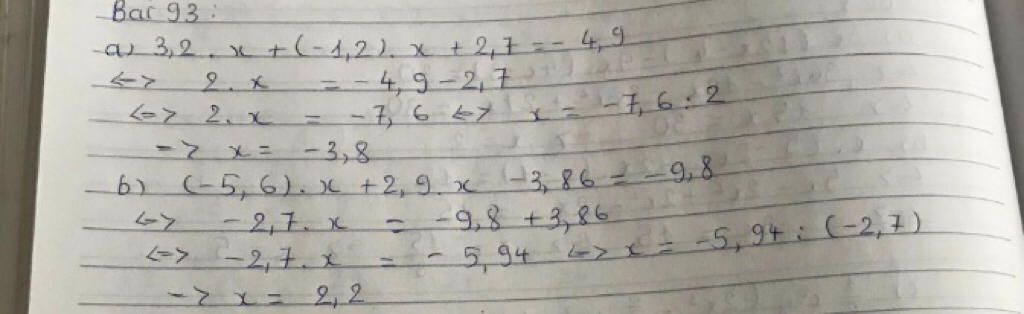 Bài 93:
a) 3,2 . x + (-1,2) . x + 2,7 = - 4,9
<=> 2 . x = - 4,9 - 2,7
<=> 2 . x = -7,6 <=> x = -7,6 : 2
-> x = -3,8
b) (-5,6) . x + 2,9 . x - 3,86 = -9,8
<=> -2,7 . x = -9,8 + 3,86
<=> -2,7 . x = - 5,94 <=> x = -5,94 : (-2,7)
-> x = 2,2